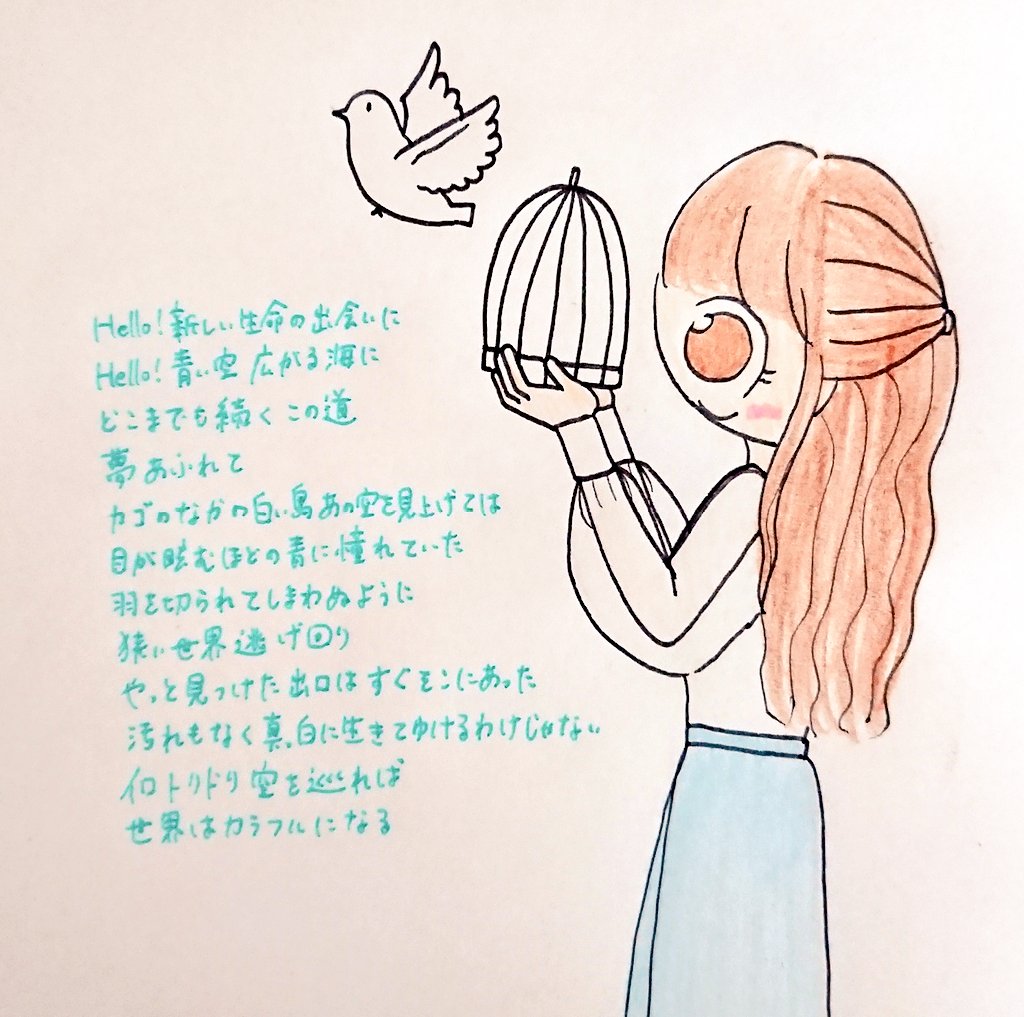 Hello!新しい生命の出会いに
Hello!青い空 広がる海に
どこまでも続くこの道
夢あふれて
カゴのなかの白い鳥あの空を見上げては
目が眩むほどの青に憧れていた
羽を切られてしまわぬように
狭い世界逃げ回り
やっと見つけた出口はすぐそこにあった
汚れもなく真っ白に生きてゆけるわけじゃない
イロトリドリ空を巡れば
世界はカラフルになる